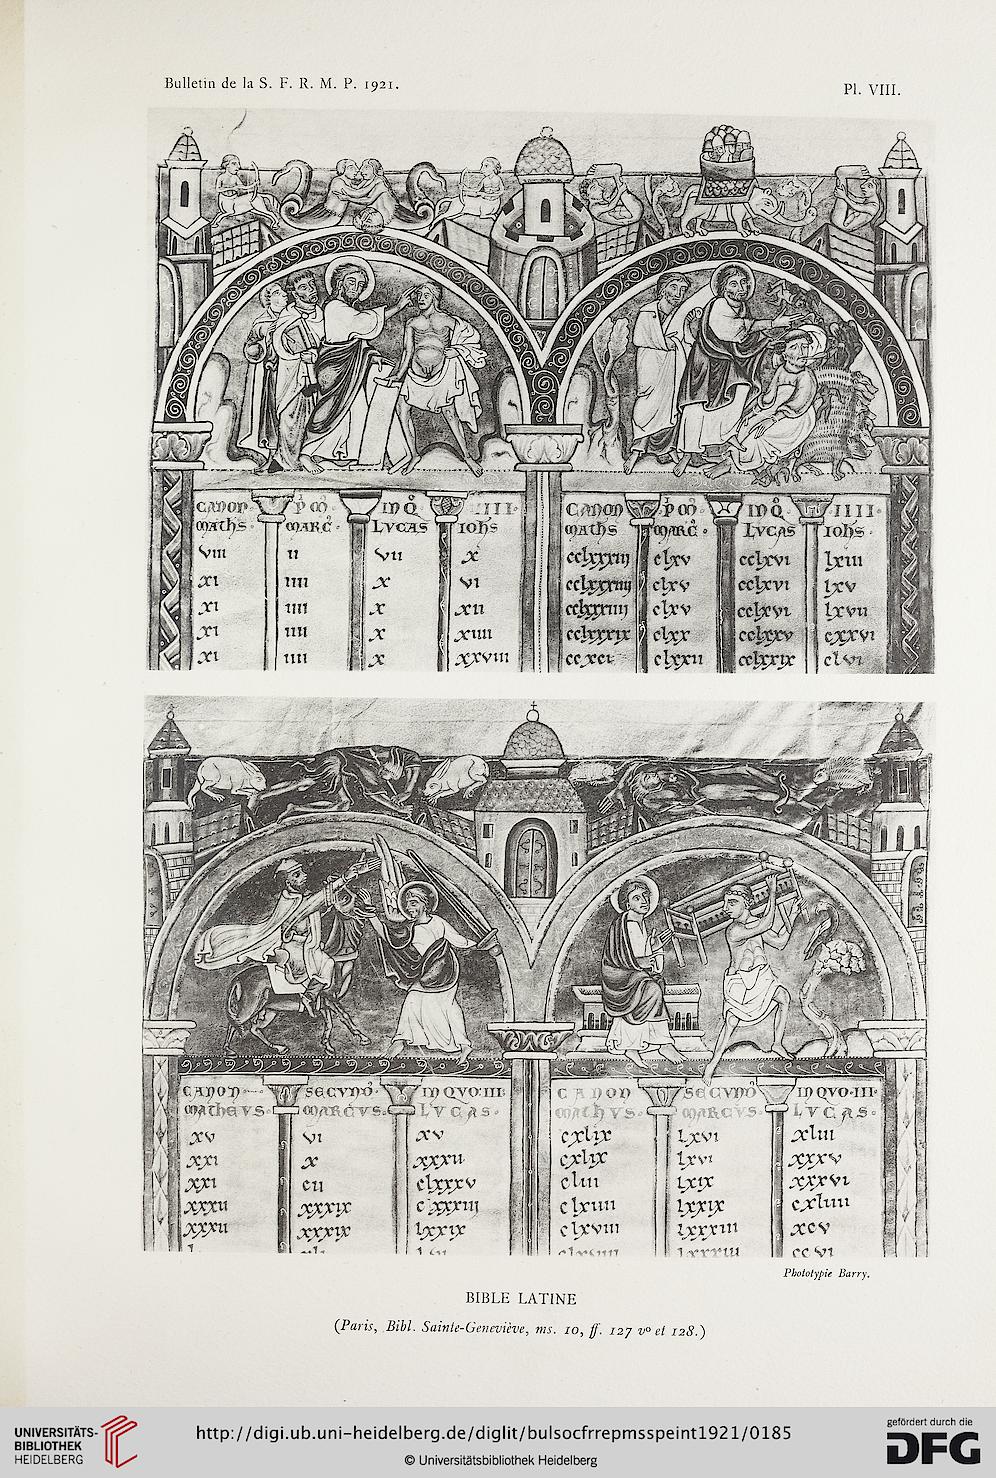 Bulletin de la S. F. R. M. P. 1921.
Pl. VIII.
CANON P̊ M̊ IN Q̊ IIII
MATHS MARC̊ LVCAS IOHS
VIII II VII X
XI IIII X VI
XI IIII X XII
XI IIII X XIIII
XI IIII X XXVIII
CANON P̊ M̊ IN Q̊ IIII
MATHS MARC̊ LVCAS IOHS
cclxxxiiij clxv cclxvi lxiii
cclxxxiiij clxv cclxvi lxv
cclxxxiiij clxv cclxvi lxvii
cclxxxix clxx cclxxv cxxvi
ccxci clxxii cclxxix clvi
CANON SECVNDO IN QVO III
MATHEVS MARCVS LVCAS
XV VI XV
XXI X XXXII
XXI CII clxxxv
XXXII XXXIX cxxxiij
XXXII XXXIX lxxix
CANON SECVNDO IN QVO III
MATHVS MARCVS LVCAS
cxlix lxvi xliii
cxlix lxvi xxxv
cliii lxix xxxvi
clxiiii lxxix cxliiii
clxviii lxxxiii xcv
Phototypie Barry.
BIBLE LATINE
(Paris, Bibl. Sainte-Geneviève, ms. 10, ff. 127 vº et 128.)
UNIVERSITÄTS-
BIBLIOTHEK
HEIDELBERG
http://digi.ub.uni-heidelberg.de/diglit/bulsocfrrepmsspeint1921/0185
© Universitätsbibliothek Heidelberg
gefördert durch die
DFG